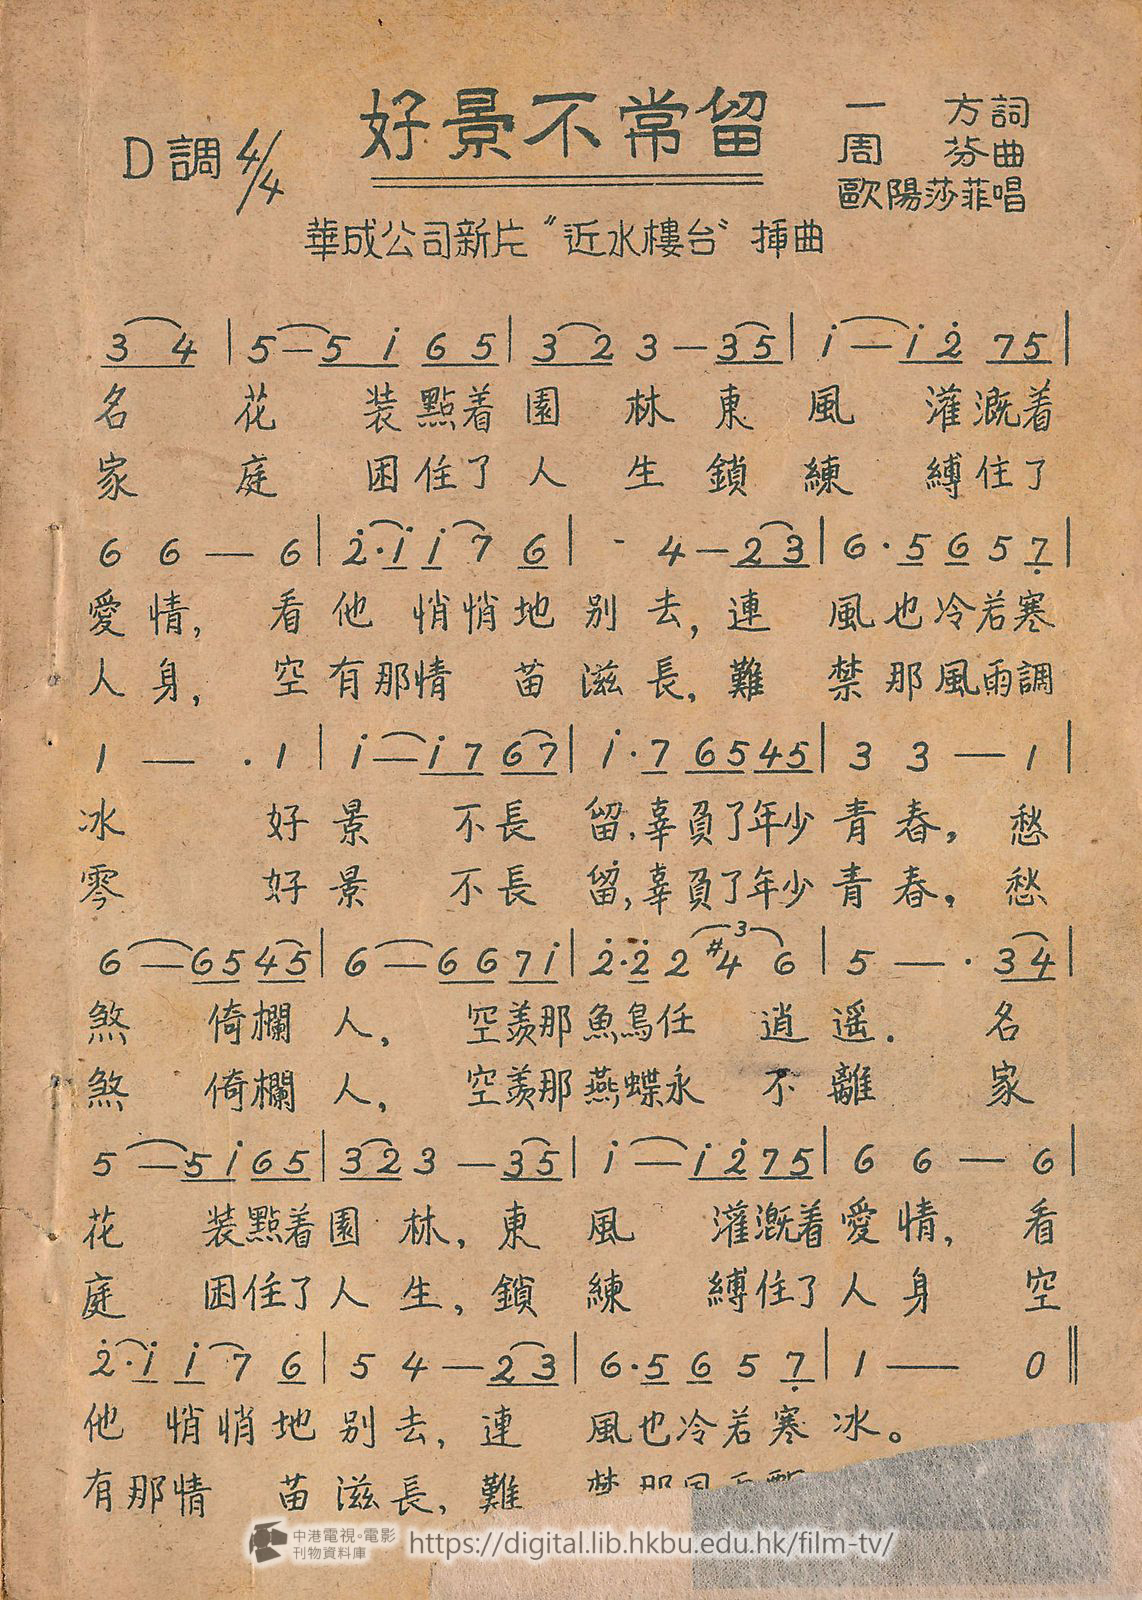 好景不常留
D調 4/4
一方詞
周芬曲
歐陽莎菲唱
華成公司新片〝近水樓台〞揷曲
3 4 | 5 — 5 i 6 5 | 3 2 3 — 3 5 | i — i 2̇ 7 5 |
名花装點着園林東風灌溉着
家庭困住了人生鎖練縛住了
6 6 — 6 | 2̇ · i i 7 6 | - 4 — 2 3 | 6 · 5 6 5 7̣ |
愛情，看他悄悄地別去，連風也冷若寒
人身，空有那情苗滋長，難禁那風雨調
1 — · 1 | i — i 7 6 7 | i · 7 6 5 4 5 | 3 3 — 1 |
冰好景不長留，辜負了年少青春，愁
零好景不長留，辜負了年少青春，愁
6 — 6 5 4 5 | 6 — 6 6 7 i | 2̇ · 2̇ 2 #4 6 | 5 — · 3 4 |
煞倚欄人，空羡那魚鳥任逍遥．名
煞倚欄人，空羡那燕蝶永不離家
5 — 5 i 6 5 | 3 2 3 — 3 5 | i — i 2̇ 7 5 | 6 6 — 6 |
花装點着園林，東風灌溉着愛情，看
庭困住了人生，鎖練縛住了人身空
2̇ · i i 7 6 | 5 4 — 2 3 | 6 · 5 6 5 7̣ | 1 — 0 ‖
他悄悄地別去，連風也冷若寒冰。
有那情苗滋長，難禁那風雨
中港電視・電影
刊物資料庫
https://digital.lib.hkbu.edu.hk/film-tv/